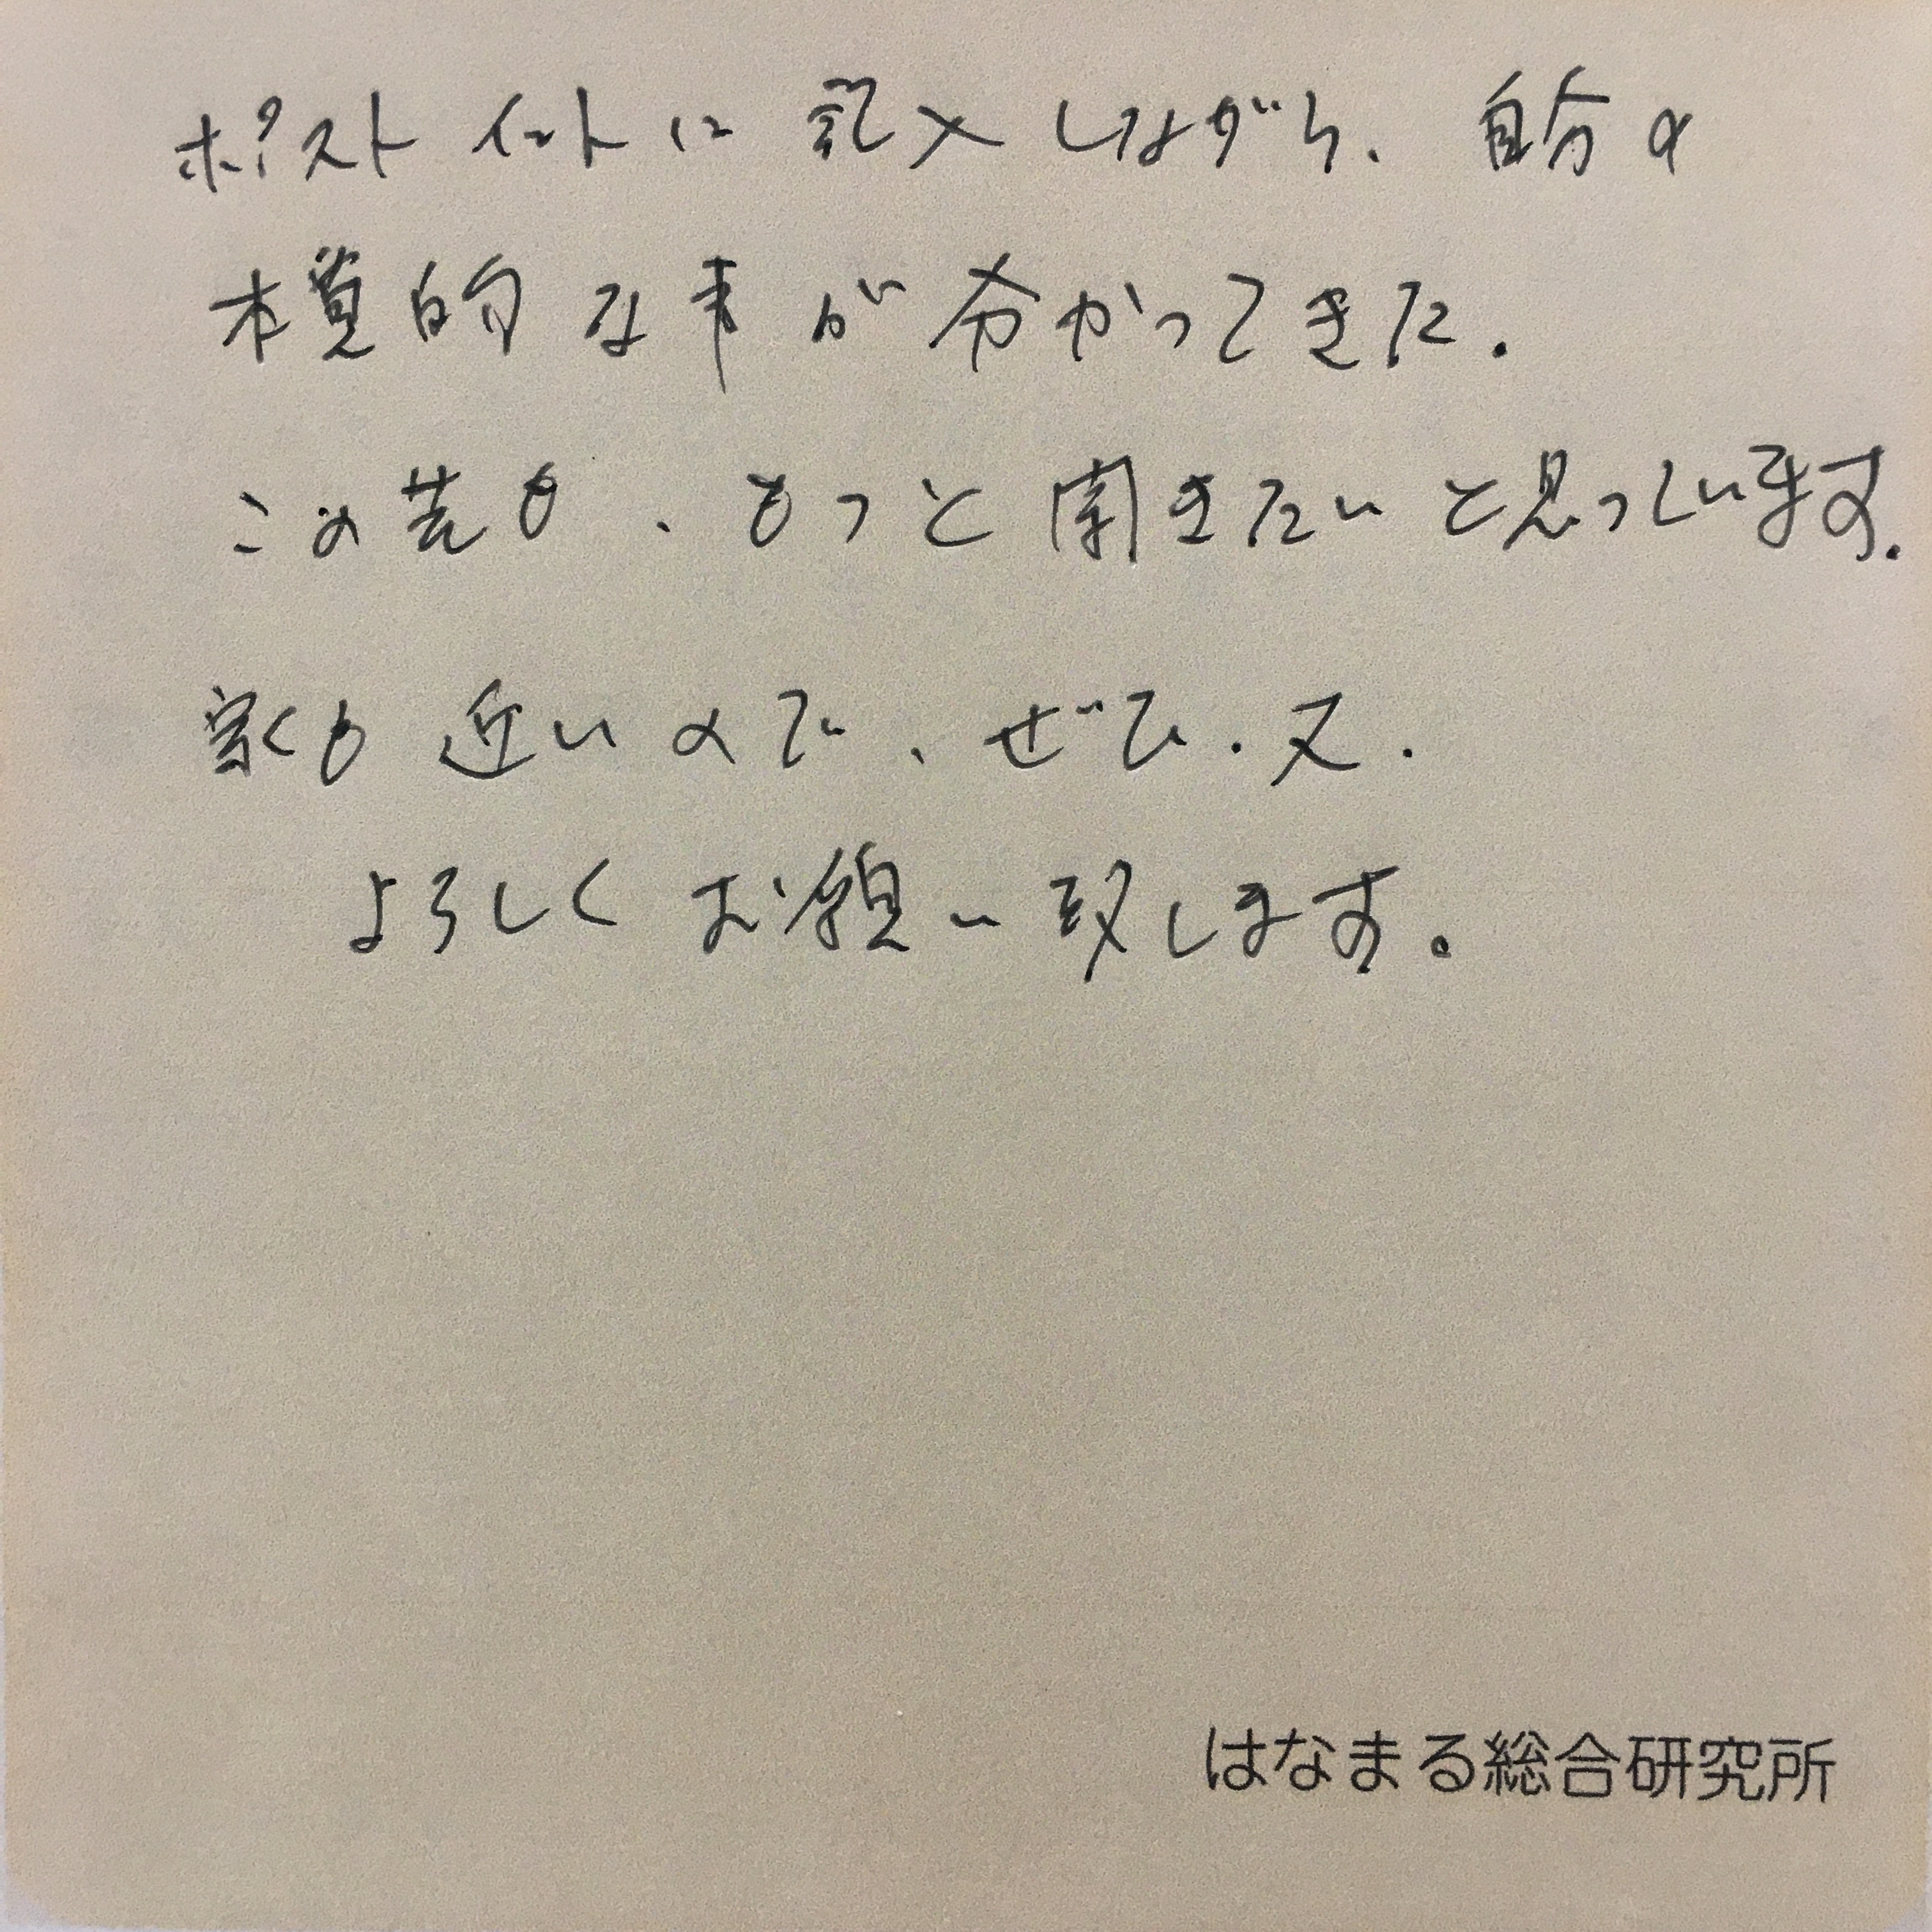 ポストイットに記入しながら、自分の
本質的な事が分かってきた.
この先も、もっと聞きたいと思っています.
家も近いので、ぜひ.又.
よろしくお願い致します。
はなまる総合研究所